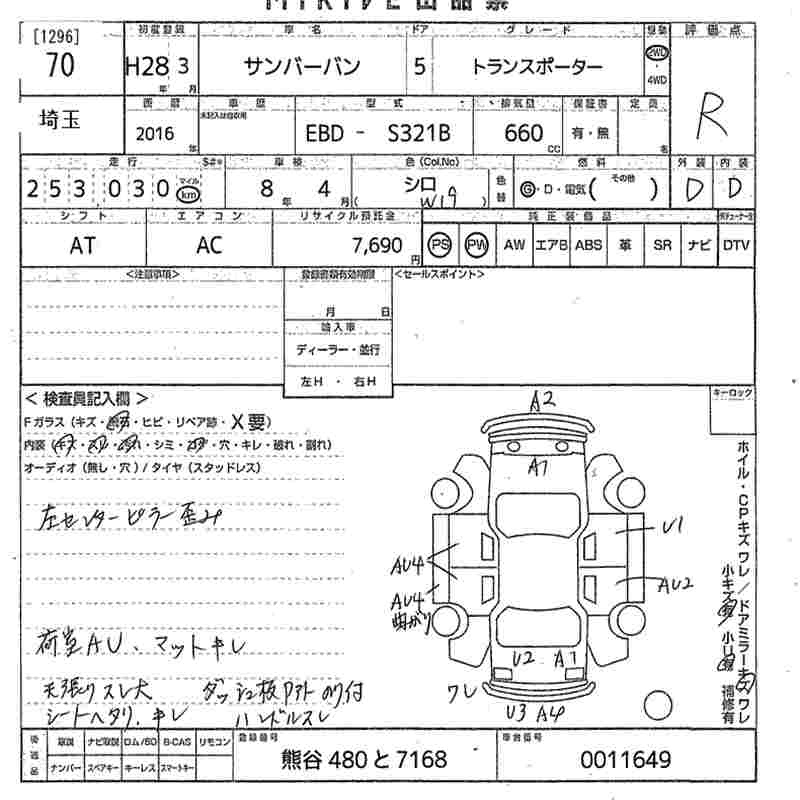 出品票
[1296] 初度登録 車名 ドア グレード 駆動 評価点
70 H28 年 3 月 サンバーバン 5 トランスポーター 2WD・4WD R
埼玉 西暦 車歴 型式 排気量 保証書 定員
2016 年 未記入は自家用 EBD - S321B 660 CC 有・無 名
走行 S#* 車検 色(Col.No) 燃料 外装 内装
253 030 マイル km 8 年 4 月 シロ W19 色替 G・D・電気( その他 ) D D
シフト エアコン リサイクル預託金 純正装備品
AT AC 7,690 円 PS PW AW エアB ABS 革 SR ナビ DTV
<注意事項> 登録書類有効期限 <セールスポイント>
月 日
輸入車
ディーラー・並行
左H ・ 右H
< 検査員記入欄 > キーロック
Fガラス (キズ・ ・ヒビ・リペア跡・X要)
内装 (キズ・ ・シミ・ ・穴・キレ・破れ・割れ)
オーディオ (無し・穴) / タイヤ (スタッドレス)
左センターピラー歪み
荷室AU、マットキレ
天張りスレ大 ダッシュ板 付
シートヘタリ、キレ ハンドルスレ
A2
A1
U1
AU4
AU2
AU4
曲がり
U2 A1
ワレ
U3 A4
ホイル・CPキズワレ/ドアミラーキズワレ
小キズ 小凹 補修有
後送品 取説 ナビ取説 ロム/SD B-CAS リモコン 登録番号 車台番号
ナンバー スペアキー キーレス スマートキー 熊谷 480 と 7168 0011649